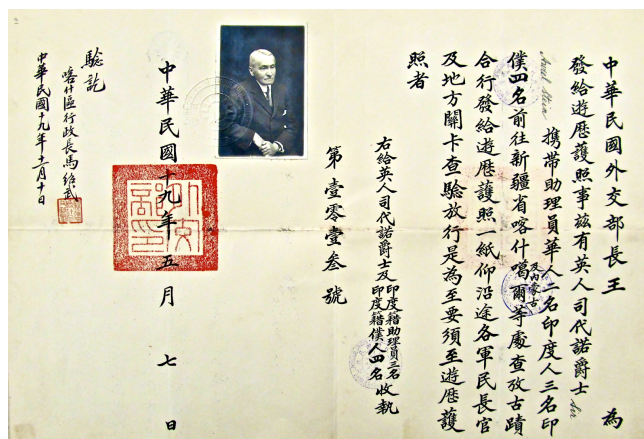 中華民國外交部長王 為
發給遊歷護照事茲有英人司代諾爵士 Sir
Aurel Stein 攜帶助理員華人二名印度人三名印
僕四名前往新疆省喀什噶爾等處查攷古蹟
及內蒙古
合行發給遊歷護照一紙仰沿途各軍民長官
及地方關卡查驗放行是為至要須至遊歷護
照者
右給英人司代諾爵士及印度籍助理員三名
印度籍僕人四名收執
第壹零壹叄號
中華民國十九年五月七日
外交部印
驗訖
喀什區行政長馬紹武
中華民國十九年十月十日